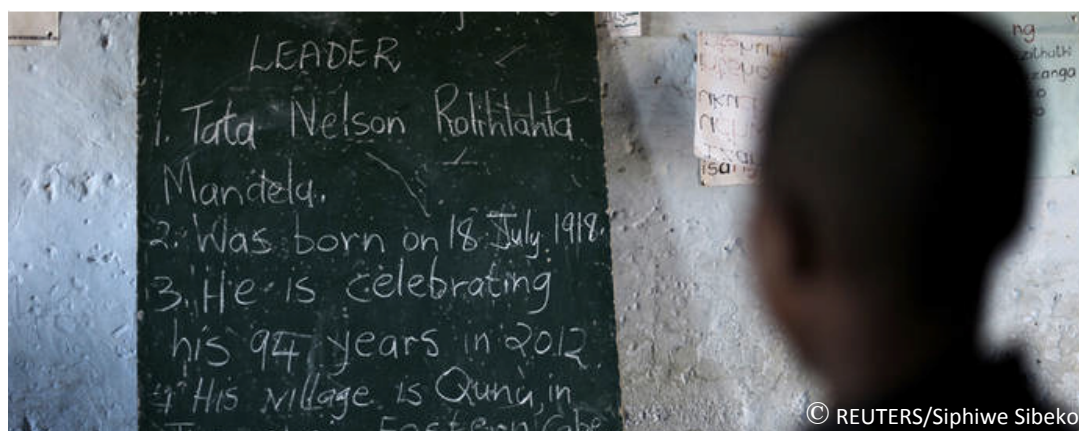 LEADER
1. Tata Nelson Rolihlahla
Mandela.
2. Was born on 18 July 1918.
3. He is celebrating
his 94 years in 2012.
4 His village is Qunu, in
Eastern Cape
ng
zithathi
zanga
isa
© REUTERS/Siphiwe Sibeko